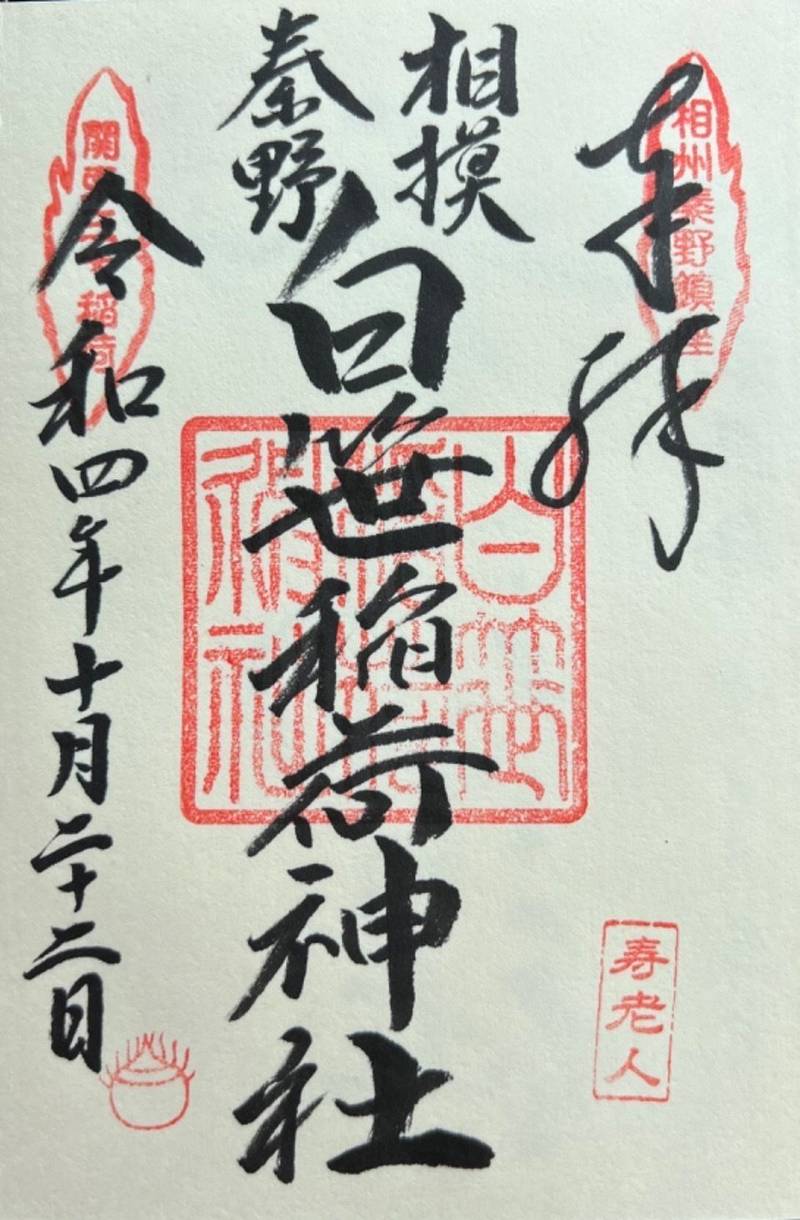 奉拝
相州秦野鎮座
相摸
秦野
白笹稲荷神社
白笹稲荷神社
寿老人
関東三稲荷
令和四年十月二十二日